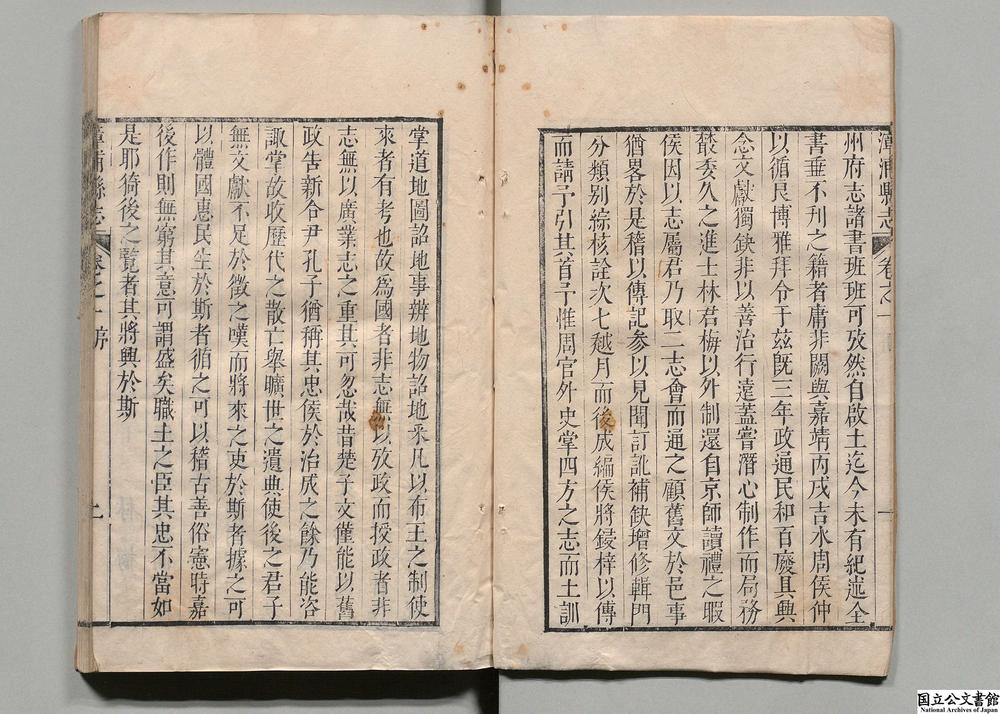 漳浦縣志 卷之一
州府志諸書班班可攷然自啟土迄今未有紀述全
書垂不刊之籍者庸非闕與嘉靖丙戌吉水周侯仲
以循良博雅拜令于茲既三年政通民和百廢具興
念文獻獨缺非以善治行遠蓋嘗潛心制作而局務
叢委久之進士林君梅以外制還自京師讀禮之暇
侯因以志屬君乃取二志會而通之顧舊文於邑事
猶畧於是稽以傳記參以見聞訂訛補缺增修輯門
分類別綜核詮次七越月而後成編侯將鋟梓以傳
而請予引其首予惟周官外史掌四方之志而土訓
掌道地圖詔地事辨地物詔地求凡以布王之制使
來者有考也故爲國者非志無以攷政而授政者非
志無以廣業志之重其可忽哉昔楚子文僅能以舊
政告新令尹孔子猶稱其忠侯於治成之餘乃能咨
諏掌故收歷代之散亡舉曠世之遺典使後之君子
無文獻不足於徵之嘆而將來之吏於斯者據之可
以體國惠民生於斯者循之可以稽古善俗憲時嘉
後作則無窮其意可謂盛矣職土之臣其忠不當如
是耶猗後之覽者其將興於斯
漳浦縣志 卷之一 序
國立公文書館
National Archives of Japan